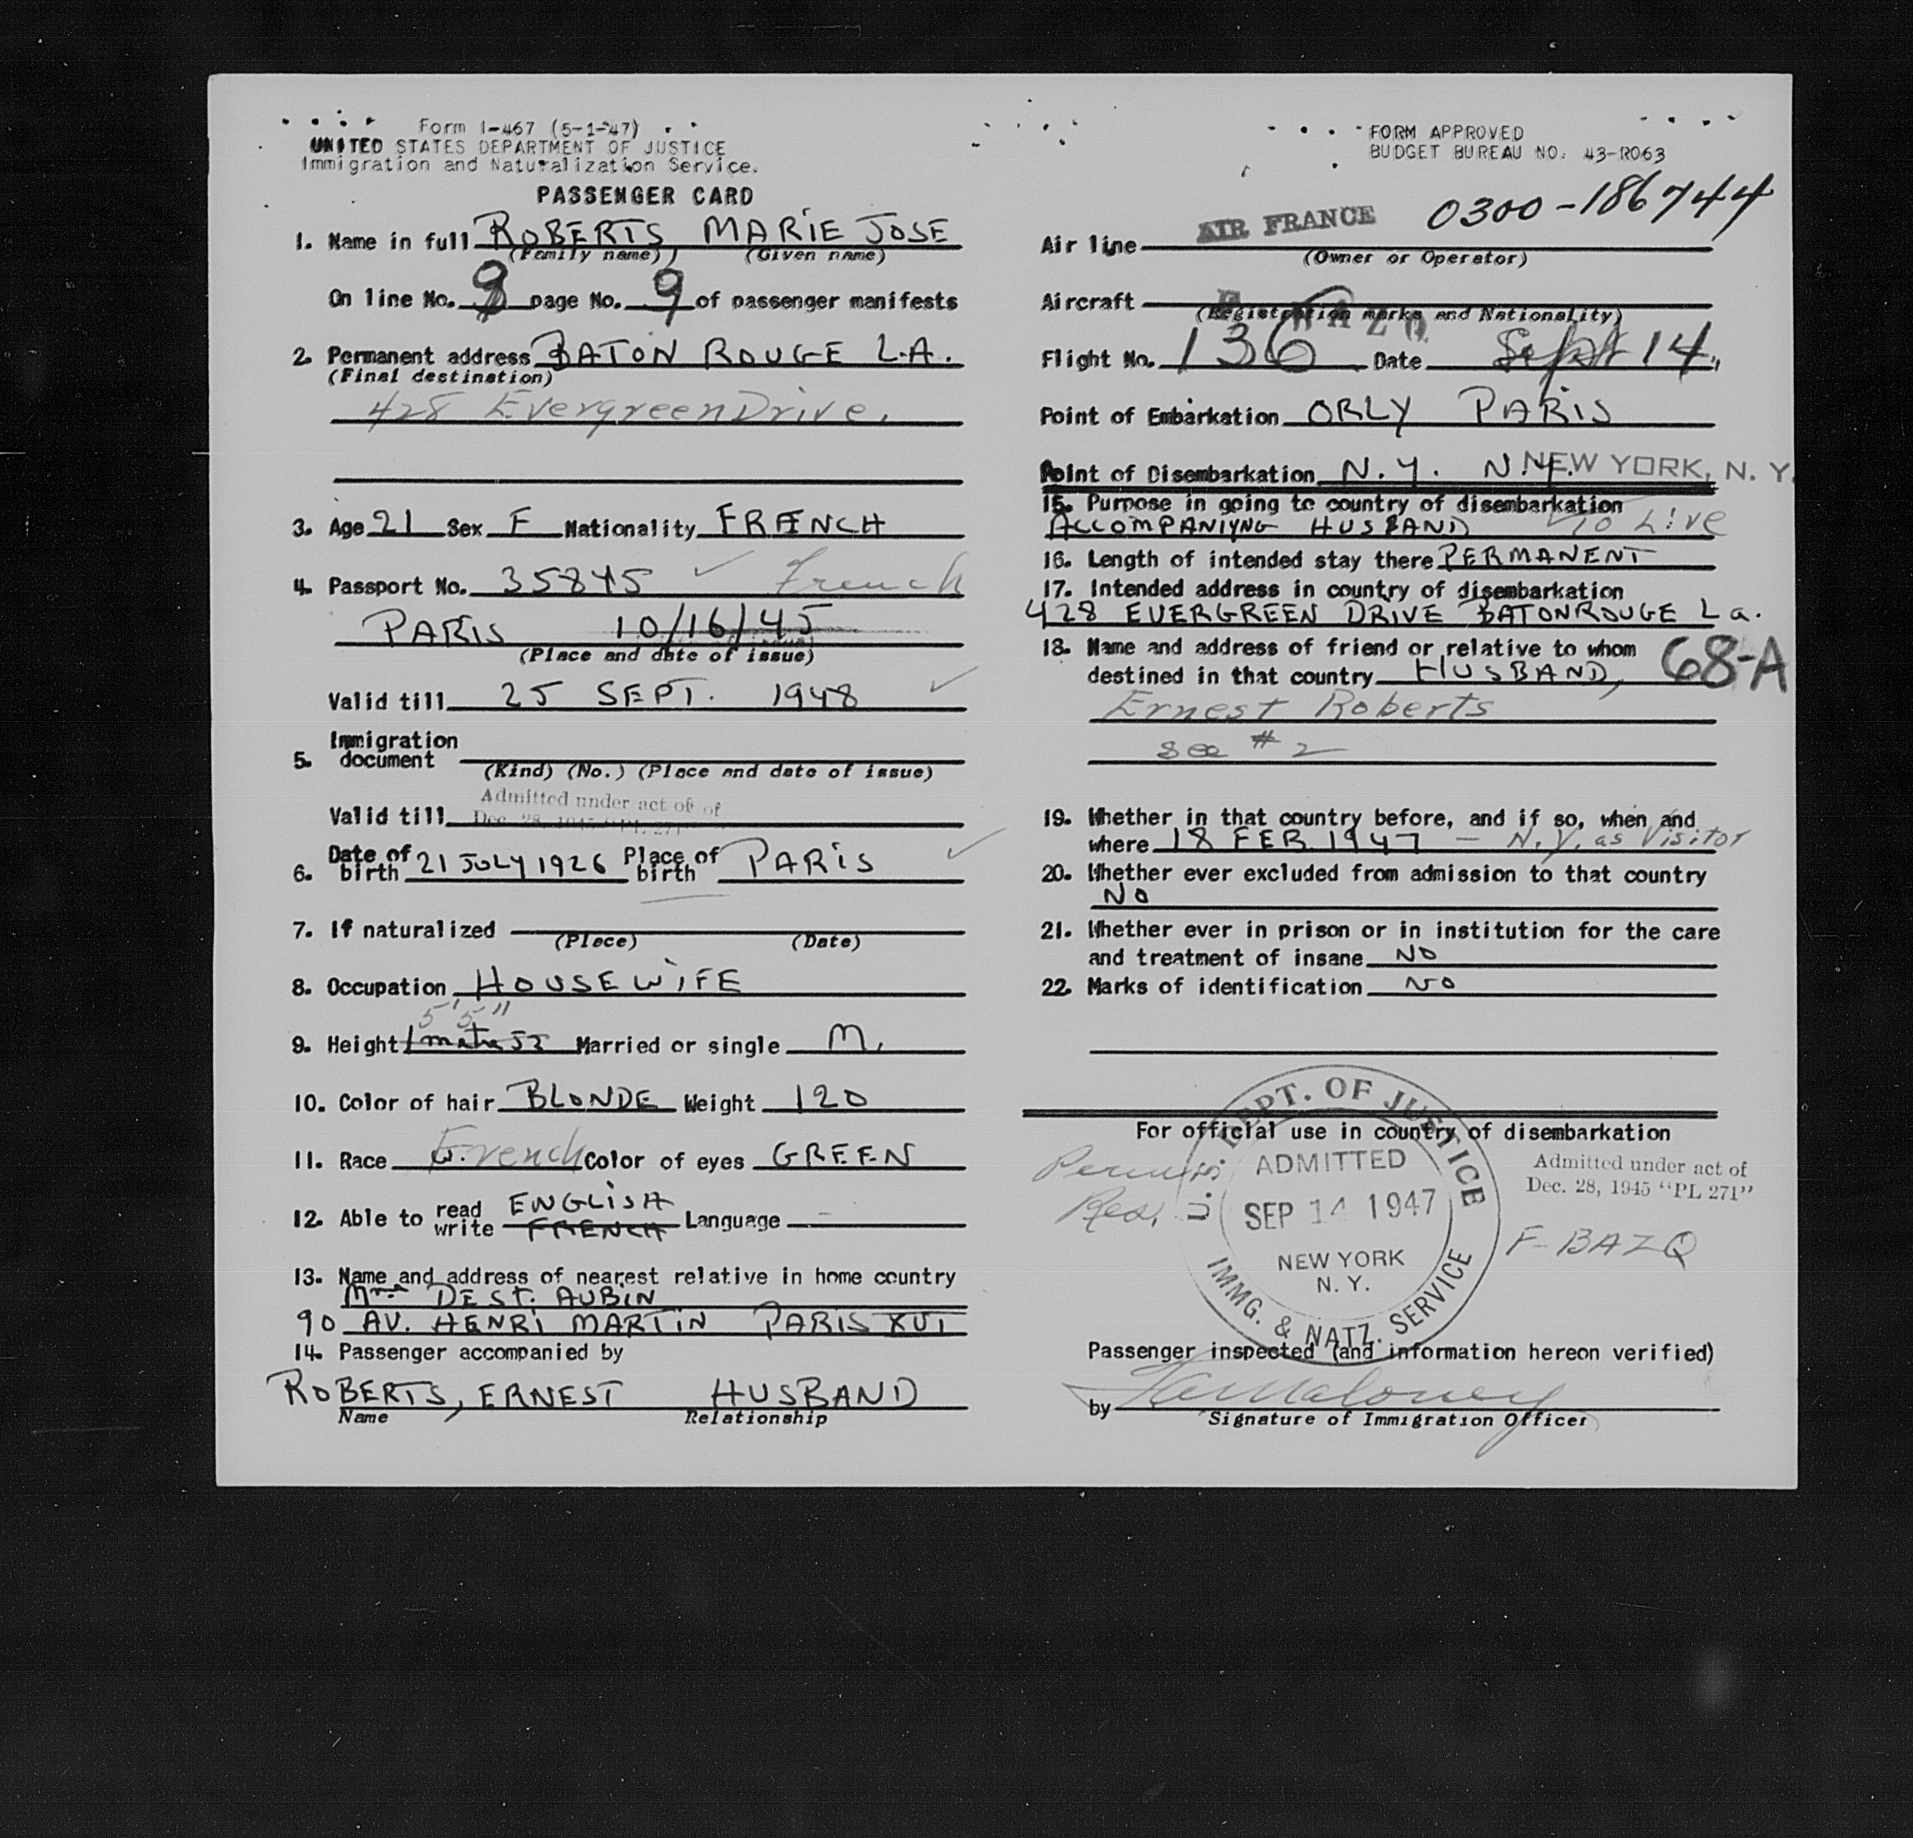 Form I-467 (5-1-47)
UNITED STATES DEPARTMENT OF JUSTICE
Immigration and Naturalization Service.
PASSENGER CARD
1. Name in full ROBERTS, MARIE JOSE
(Family name) (Given name)
On line No. page No. 9 of passenger manifests
2. Permanent address BATON ROUGE L.A.
(Final destination)
428 Evergreen Drive.
3. Age 21 Sex F Nationality FRENCH
4. Passport No. 35845 French
PARIS 10/16/45
(Place and date of issue)
Valid till 25 SEPT. 1948
5. Immigration document
(Kind) (No.) (Place and date of issue)
Admitted under act of of
Valid till Dec. 28, 1945 "PL 271"
6. Date of birth 21 JULY 1926 Place of birth PARIS
7. If naturalized
(Place) (Date)
8. Occupation HOUSEWIFE
5' 5"
9. Height Married or single M.
10. Color of hair BLONDE Weight 120
11. Race French Color of eyes GREEN
12. Able to read write ENGLISH FRENCH Language –
13. Name and address of nearest relative in home country
Mme DE ST. AUBIN
90 AV. HENRI MARTIN PARIS XVI
14. Passenger accompanied by
ROBERTS, ERNEST HUSBAND
Name Relationship
FORM APPROVED
BUDGET BUREAU NO. 43-R063
0300-186744
Air line AIR FRANCE
(Owner or Operator)
Aircraft
(Registration marks and Nationality)
Flight No. 136 Date Sept 14,
Point of Embarkation ORLY PARIS
Point of Disembarkation N.Y. N.Y. NEW YORK, N. Y.
15. Purpose in going to country of disembarkation
ACCOMPANIYNG HUSBAND To Live
16. Length of intended stay there PERMANENT
17. Intended address in country of disembarkation
428 EVERGREEN DRIVE BATONROUGE La.
18. Name and address of friend or relative to whom
destined in that country HUSBAND, 68-A
Ernest Roberts
see # 2
19. Whether in that country before, and if so, when and
where 18 FEB 1947 – N.Y. as Visitor
20. Whether ever excluded from admission to that country
NO
21. Whether ever in prison or in institution for the care
and treatment of insane NO
22. Marks of identification NO
For official use in country of disembarkation
U.S. DEPT. OF JUSTICE
ADMITTED
SEP 14 1947
NEW YORK
N. Y.
IMMG. & NATZ. SERVICE
Res.
Admitted under act of
Dec. 28, 1945 "PL 271"
F-BAZQ
Passenger inspected (and information hereon verified)
by
Signature of Immigration Officer